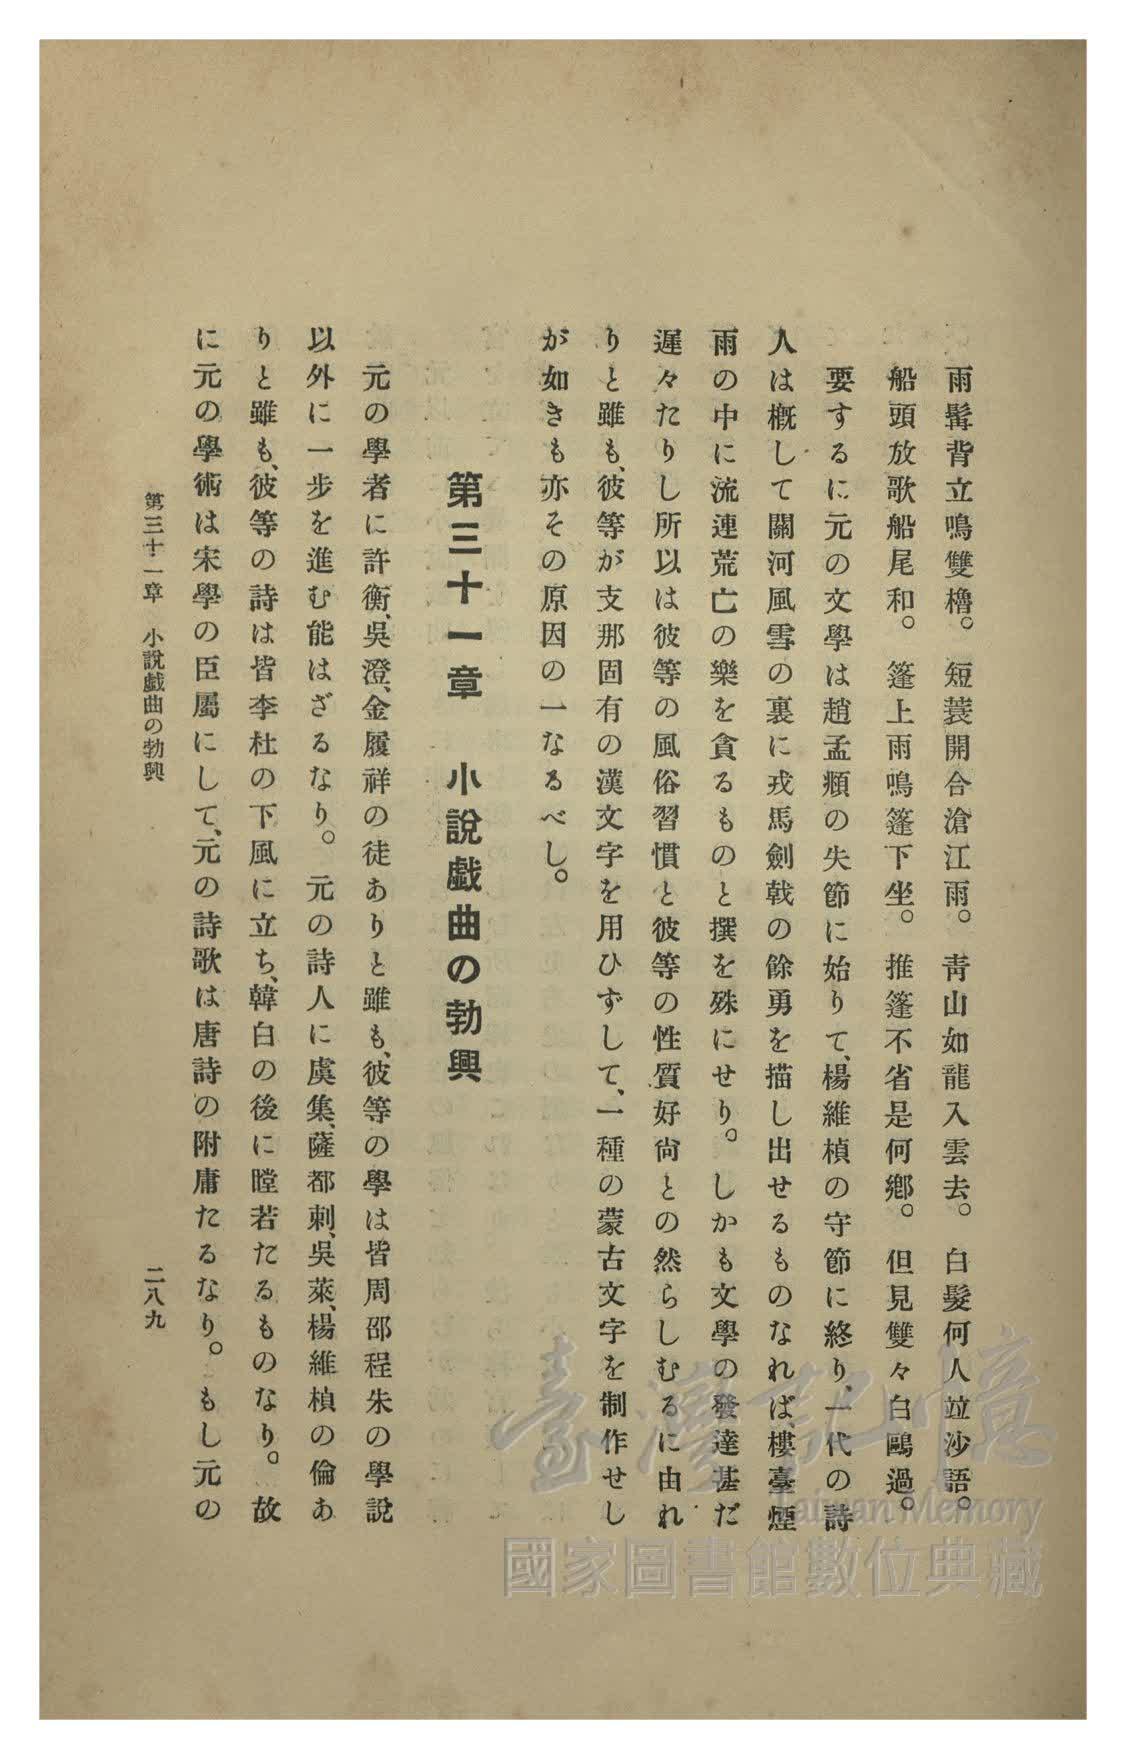 雨髯背立鳴雙櫓。短蓑開合滄江雨。靑山如龍入雲去。白髮何人竝沙語。
船頭放歌船尾和。篷上雨鳴篷下坐。推篷不省是何鄕。但見雙々白鷗過。
要するに元の文學は趙孟頫の失節に始りて、楊維楨の守節に終り、一代の詩
人は槪して關河風雪の裏に戎馬劍戟の餘勇を描し出せるものなれば、樓臺煙
雨の中に流連荒亡の樂を貪るものと撰を殊にせり。しかも文學の發達甚だ
遲々たりし所以は彼等の風俗習慣と彼等の性質好尙との然らしむるに由れ
りと雖も、彼等が支那固有の漢文字を用ひずして、一種の蒙古文字を制作せし
が如きも亦その原因の一なるべし。
第三十一章　小說戯曲の勃興
元の學者に許衡、吳澄、金履祥の徒ありと雖も、彼等の學は皆周邵程朱の學說
以外に一步を進む能はざるなり。元の詩人に虞集、薩都剌、吳萊、楊維楨の倫あ
りと雖も、彼等の詩は皆李杜の下風に立ち、韓白の後に瞠若たるものなり。故
に元の學術は宋學の臣屬にして、元の詩歌は唐詩の附庸たるなり。もし元の
第三十一章　小說戯曲の勃興
二八九
臺灣記憶
Taiwan Memory
國家圖書館數位典藏